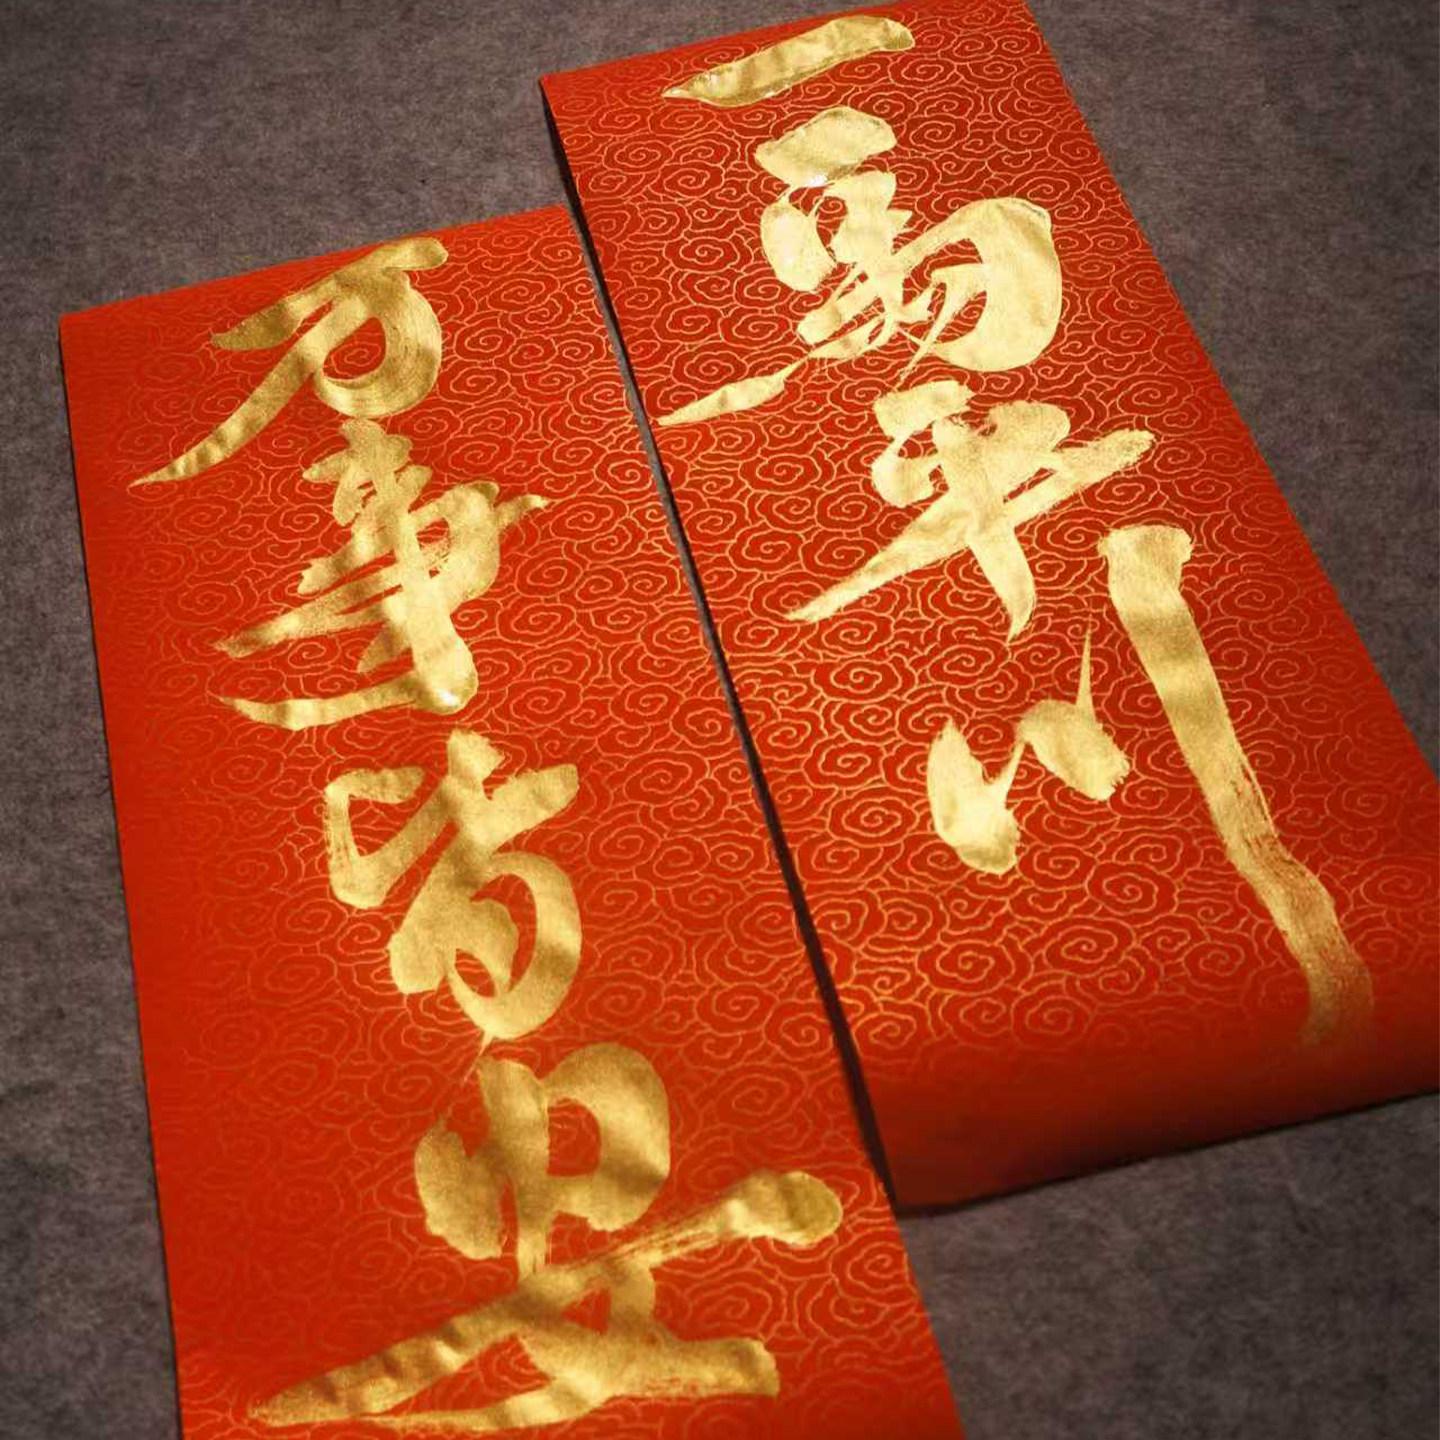 一马平川
万事皆安